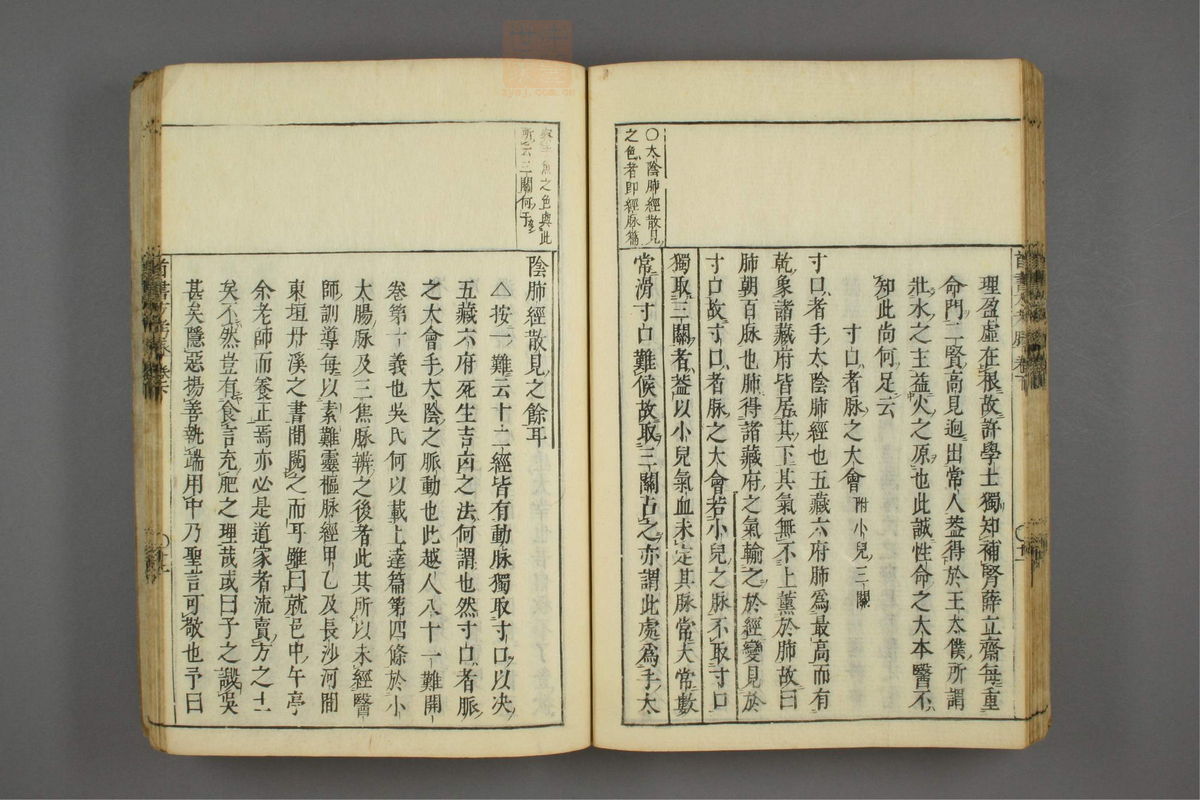 〇太陰肺經散見
之色者即經脉篇
理盈虛在根故許學士獨知補腎薛立齋每重
命門二賢高見逈出常人葢得於王太僕所謂
壯水之主益火之原也此誠性命之大本醫不
知此尚何足云
寸口者脉之大會 附小兒三關
寸口者手太陰肺經也五藏六府肺爲最高而有
乾象諸藏府皆居其下其氣無不上薰於肺故曰
肺朝百脉也肺得諸藏府之氣輸之於經變見於
寸口故寸口者脉之大會若小兒之脉不取寸口
獨取三關者葢以小兒氣血未定其脉常大常數
常滑寸口難候故取三關占之亦謂此處爲手太
之色與此
所云三關何干
陰肺經散見之餘耳
△按一難云十二經皆有動脉獨取寸口以决
五藏六府死生吉凶之法何謂也然寸口者脈
之大會手太陰之脈動也此越人八十一難開
卷第十義也吳氏何以載上達篇第四條於小
太腸脉及三焦脉辨之後者此其所以未經醫
師訓導每以素難靈樞脉經甲乙及長沙河間
東垣丹溪之書間閱之而耳雖曰就邑中午亭
余老師而養正焉亦必是道家者流賣方之士
矣不然豈有食言充肥之理哉或曰子之譏吳
甚矣隱惡揚善執端用中乃聖言可敬也予曰